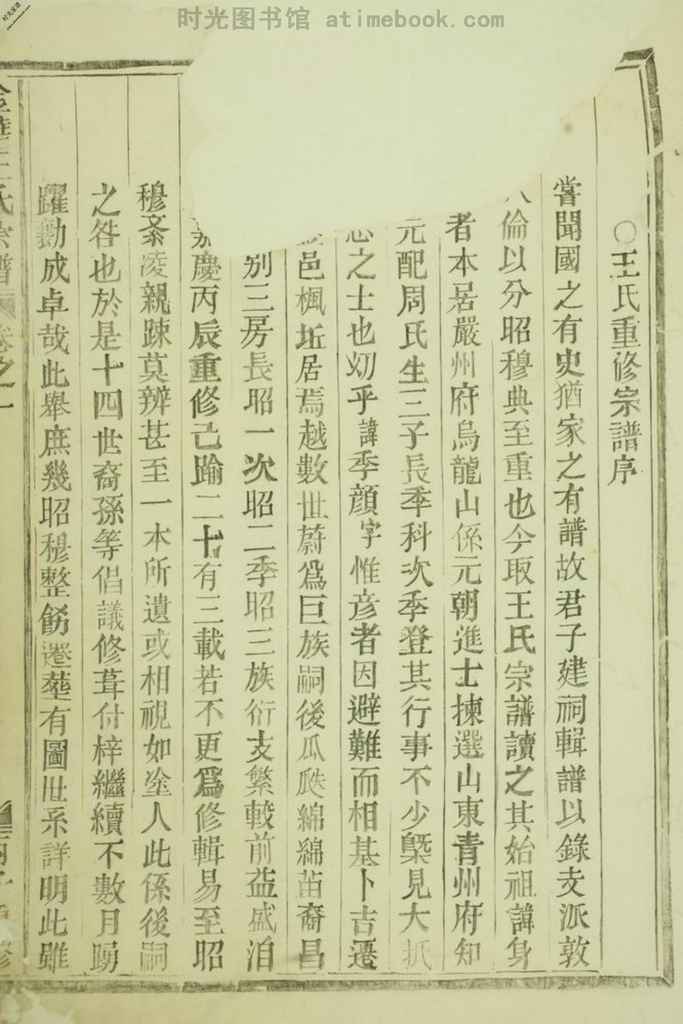 时光图书馆 atimebook.com
○王氏重修宗譜序
嘗聞國之有史猶家之有譜故君子建祠輯譜以錄支派敦
人倫以分昭穆典至重也今取王氏宗譜讀之其始祖諱身
者本居嚴州府烏龍山係元朝進士揀選山東青州府知
元配周氏生三子長季科次季登其行事不少槩見大抵
之士也刅乎諱季顏字惟彥者因避難而相基卜吉遷
邑楓坵居焉越數世蔚爲巨族嗣後瓜瓞綿綿苗裔昌
别三房長昭一次昭二季昭三族衍支繁較前益盛洎
慶丙辰重修已踰二十有三載若不更爲修輯易至昭
穆紊凌親踈莫辨甚至一本所遺或相視如塗人此係後嗣
之咎也於是十四世裔孫等倡議修葺付梓繼續不數月踴
躍勷成卓哉此舉庶幾昭穆整飭遷塟有圖世系詳明此雖
金華王氏宗譜 卷之一